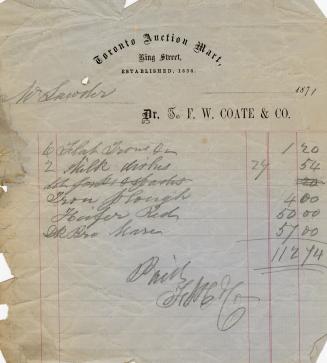 Toronto Auction Mart,
King Street,
ESTABLISHED, 1834.
1871
Mr Lawder
Dr. To F. W. COATE & CO.
6 Flat Irons 1 20
2 Milk dishes 27 54
forks & 20
Iron plough 4 00
Heifer Red 50 00
Dk Bro Mare 57 00
112 74
Paid